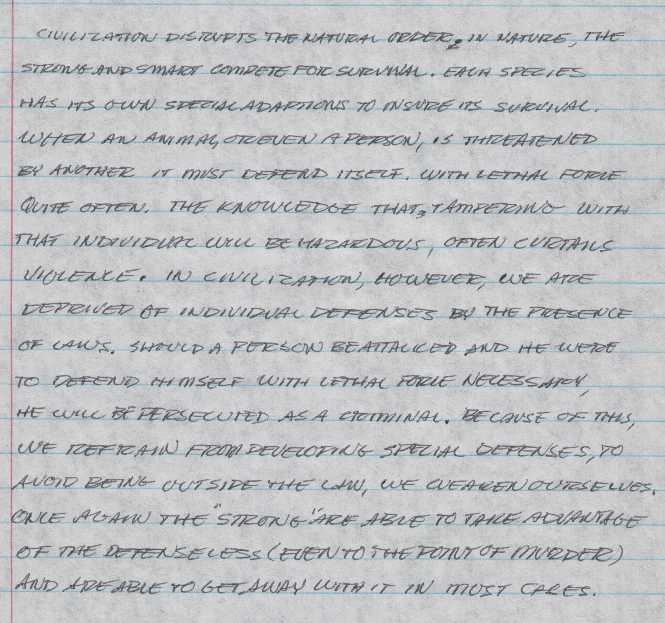 CIVILIZATION DISRUPTS THE NATURAL ORDER; IN NATURE, THE
STRONG AND SMART COMPETE FOR SURVIVAL. EACH SPECIES
HAS ITS OWN SPECIAL ADAPTIONS TO INSURE ITS SURVIVAL.
WHEN AN ANIMAL, OR EVEN A PERSON, IS THREATENED
BY ANOTHER IT MUST DEFEND ITSELF. WITH LETHAL FORCE
QUITE OFTEN. THE KNOWLEDGE THAT, TAMPERING WITH
THAT INDIVIDUAL WILL BE HAZARDOUS, OFTEN CURTAILS
VIOLENCE. IN CIVILIZATION, HOWEVER, WE ARE
DEPRIVED OF INDIVIDUAL DEFENSES BY THE PRESENCE
OF LAWS. SHOULD A PERSON BE ATTACKED AND HE WERE
TO DEFEND HIMSELF WITH LETHAL FORCE NECESSARY,
HE WILL BE PERSECUTED AS A CRIMINAL. BECAUSE OF THIS,
WE REFRAIN FROM DEVELOPING SPECIAL DEFENSES, TO
AVOID BEING OUTSIDE THE LAW, WE WEAKEN OURSELVES.
ONCE AGAIN THE "STRONG" ARE ABLE TO TAKE ADVANTAGE
OF THE DEFENSELESS (EVEN TO THE POINT OF MURDER)
AND ARE ABLE TO GET AWAY WITH IT IN MOST CASES.